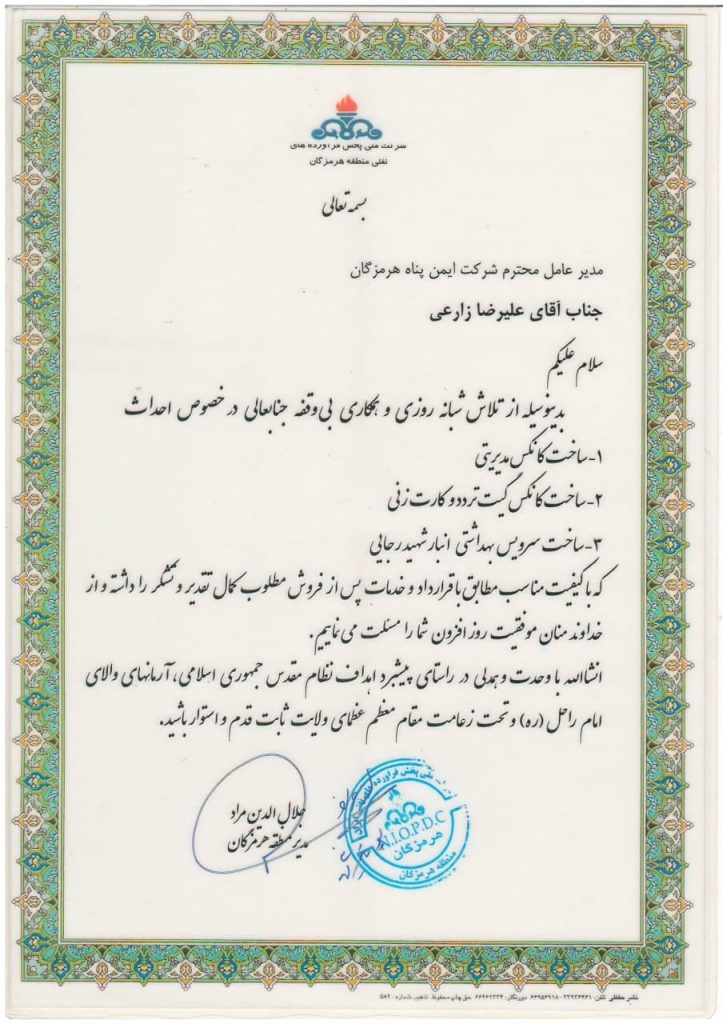 شرکت ملی پخش فرآورده های
نفتی منطقه هرمزگان
بسمه تعالی
مدیر عامل محترم شرکت ایمن پناه هرمزگان
جناب آقای علیرضا زارعی
سلام علیکم
بدینوسیله از تلاش شبانه روزی و همکاری بی وقفه جنابعالی در خصوص احداث
۱-ساخت کانکس مدیریتی
۲-ساخت کانکس گیت تردد و کارت زنی
۳-ساخت سرویس بهداشتی انبار شهید رجایی
که با کیفیت مناسب مطابق با قرارداد و خدمات پس از فروش مطلوب کمال تقدیر و تشکر را داشته و از
خداوند منان موفقیت روز افزون شما را مسئلت می نماییم.
انشاالله با وحدت و همدلی در راستای پیشبرد اهداف نظام مقدس جمهوری اسلامی، آرمانهای والای
امام راحل (ره) و تحت زعامت مقام معظم عظمای ولایت ثابت قدم و استوار باشید.
جلال الدین مراد
مدیر منطقه هرمزگان
ملی پخش فرآورده های نفتی ایران
N.I.O.P.D.C
هرمزگان
منطقه هرمزگان
نشر حفظی تلفن: ۳۳۹۳۶۴۶۱ - ۶۶۹۵۶۹۱۸ دورنگار: ۶۶۴۶۷۳۳۴ حق چاپ محفوظ. تذهیب شماره: ۵۸۲